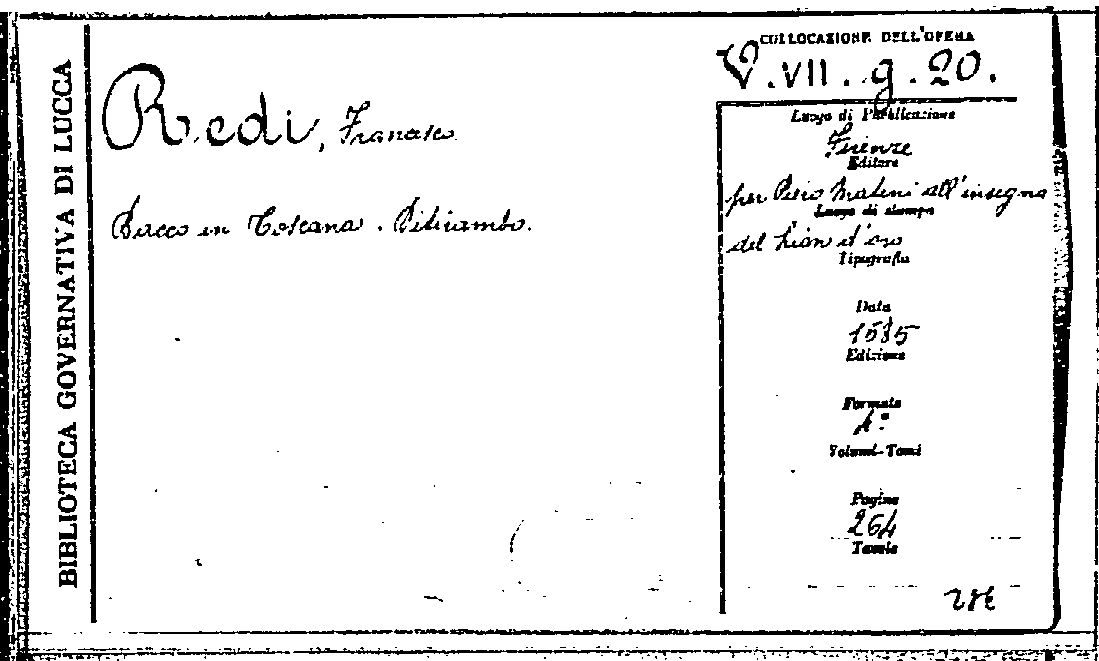 BIBLIOTECA GOVERNATIVA DI LUCCA
COLLOCAZIONE DELL'OPERA
V.VII.g.20.
Redi, Francesco
Bacco in Toscana. Ditirambo.
Luogo di Pubblicazione
Firenze
Editore
per Piero Matini all'insegna
Luogo di stampa
del Lion d'oro
Tipografia
Data
1585
Edizione
Formato
4°
Volumi-Tomi
Pagine
264
Tavole